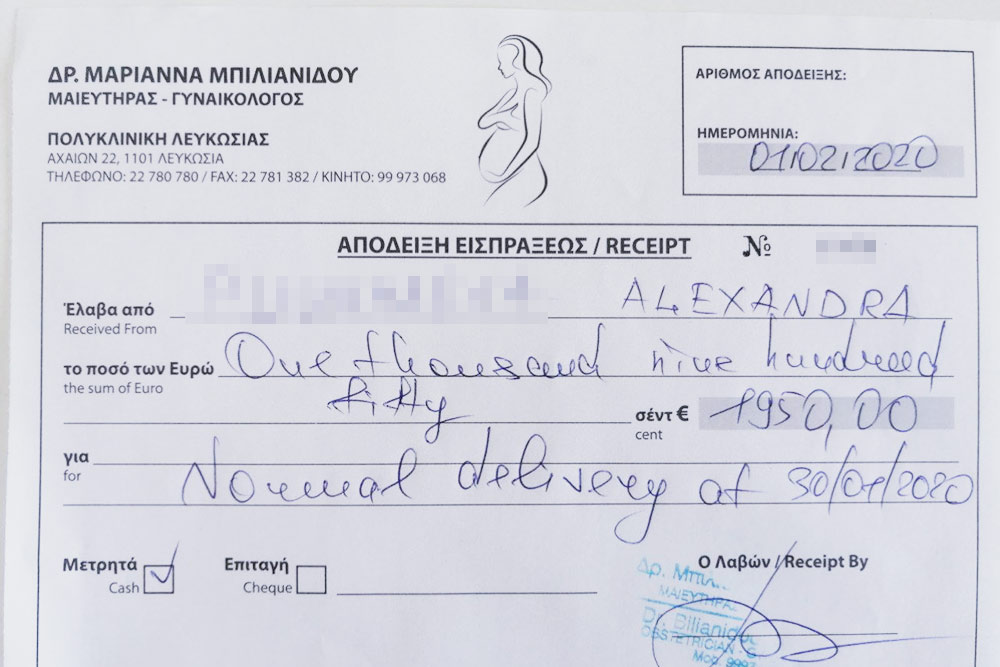 ΔΡ. ΜΑΡΙΑΝΝΑ ΜΠΙΛΙΑΝΙΔΟΥ
ΜΑΙΕΥΤΗΡΑΣ - ΓΥΝΑΙΚΟΛΟΓΟΣ
ΠΟΛΥΚΛΙΝΙΚΗ ΛΕΥΚΩΣΙΑΣ
ΑΧΑΙΩΝ 22, 1101 ΛΕΥΚΩΣΙΑ
ΤΗΛΕΦΩΝΟ: 22 780 780 / FAX: 22 781 382 / ΚΙΝΗΤΟ: 99 973 068
ΑΡΙΘΜΟΣ ΑΠΟΔΕΙΞΗΣ:
ΗΜΕΡΟΜΗΝΙΑ:
01.02.2020
ΑΠΟΔΕΙΞΗ ΕΙΣΠΡΑΞΕΩΣ / RECEIPT №
Έλαβα από ALEXANDRA
Received From
το ποσό των Ευρώ One thousand nine hundred
the sum of Euro
fifty σέντ € 1950,00
cent
για
for Normal delivery at 30/01/2020
Μετρητά Επιταγή Ο Λαβών / Receipt By
Cash Cheque
Δρ.
ΜΑΙΕΥΤΗΡΑΣ
Dr. Bilianidou
OBSTETRICIAN - G